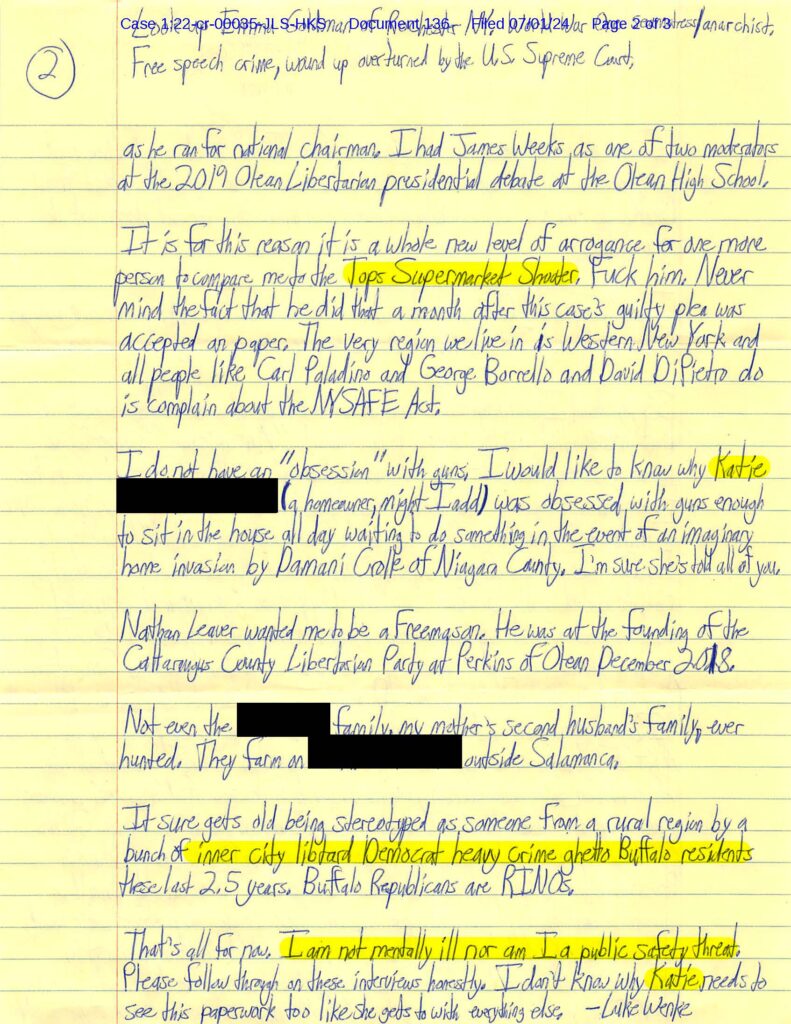 Case 1:22-cr-00035-JLS-HKS Document 136 Filed 07/01/24 Page 2 of 3
Look up Emma Goldman of Rochester NY. World War One Seamstress/anarchist.
2
Free speech crime, wound up overturned by the U.S. Supreme Court.
as he ran for national chairman. I had James Weeks as one of two moderators
at the 2019 Olean Libertarian presidential debate at the Olean High School.
It is for this reason it is a whole new level of arrogance for one more
person to compare me to the Tops Supermarket Shooter. Fuck him. Never
mind the fact that he did that a month after this case's guilty plea was
accepted on paper. The very region we live in is Western New York and
all people like Carl Paladino and George Borrello and David DiPietro do
is complain about the NYSAFE Act.
I do not have an "obsession" with guns. I would like to know why Katie
(a homeowner, might I add) was obsessed with guns enough
to sit in the house all day waiting to do something in the event of an imaginary
home invasion by Damani Crolle of Niagara County. I'm sure she's told all of you.
Nathan Leaver wanted me to be a Freemason. He was at the founding of the
Cattaraugus County Libertarian Party at Perkins of Olean December 2018.
Not even the family, my mother's second husband's family, ever
hunted. They farm on outside Salamanca.
It sure gets old being stereotyped as someone from a rural region by a
bunch of inner city libtard Democrat heavy crime ghetto Buffalo residents
these last 2.5 years. Buffalo Republicans are RINOs.
That's all for now. I am not mentally ill nor am I a public safety threat.
Please follow through on these interviews honestly. I don't know why Katie needs to
see this paperwork too like she gets to with everything else. -Luke Wenke